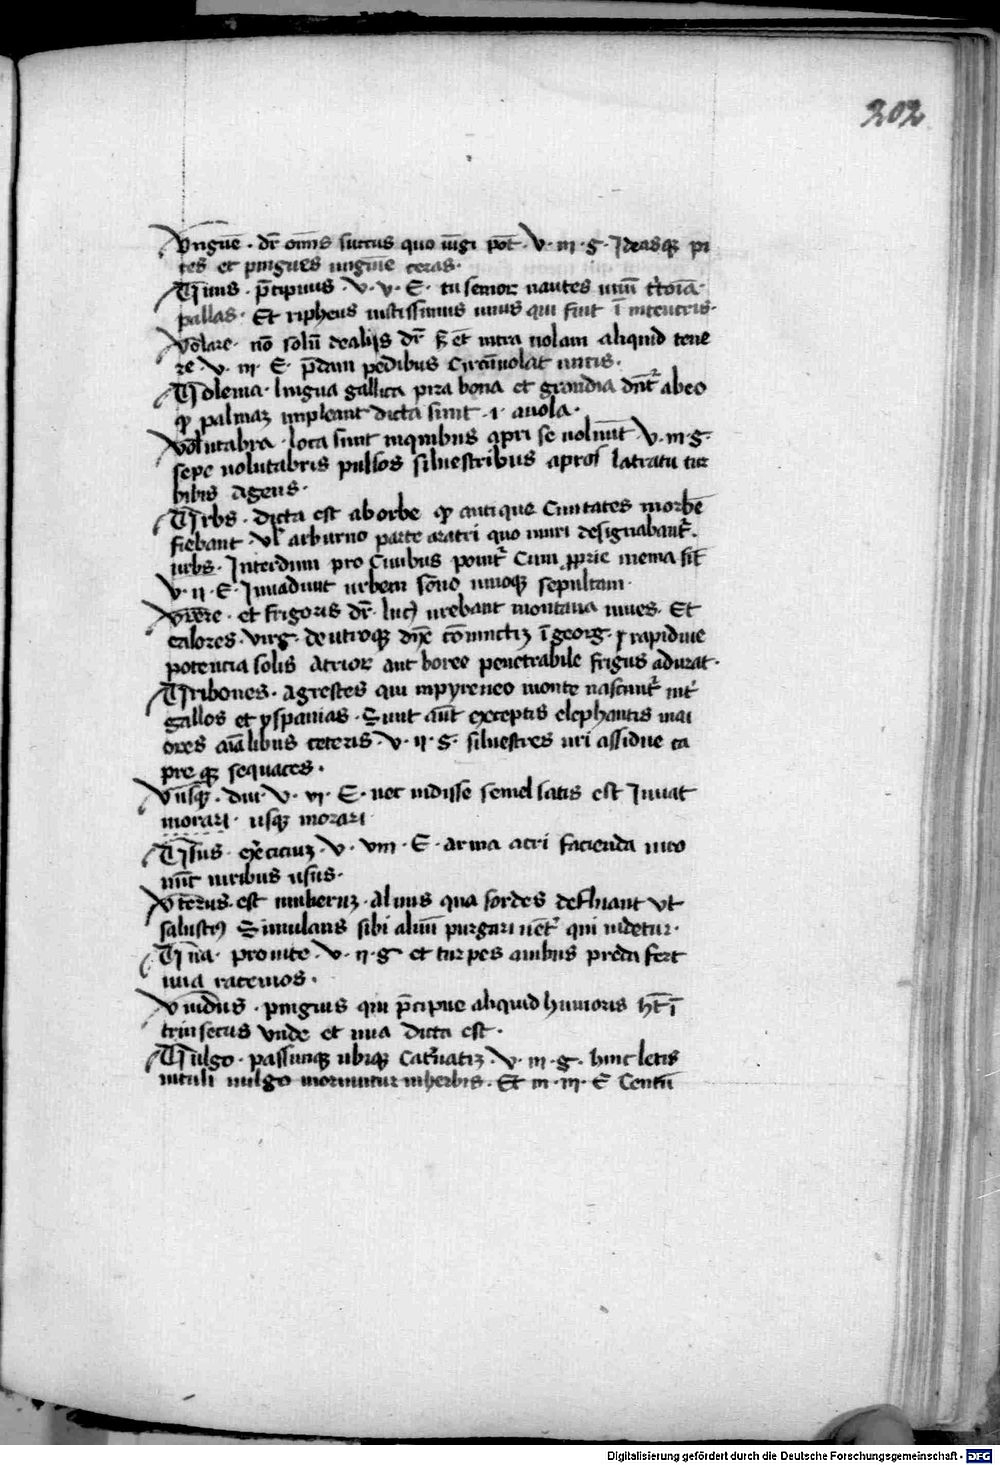 202
Vngue᷒ . dr̄ om̄is succus quo ūngi pōt . V . III . G . Ideasqꝫ pi
ces et pingues ungui᷒e ceras .
Unus . p̄cipuus . V . V . E . tu senior nautes unū t̄toīa .
pallas . Et ripheus iustissimus unus qui fuit ī in teucris .
Volare . nō solū de alijs dr̄ s̄ et̄ intra uolam aliquid tene
re . V . III . E . p̄dam pedibus circūuolat uncis .
Volema . lingua gallica pira bona et grandia dn̄t᷑ ab eo
ꝙ palmaꝫ impleant dicta sunt . i . a uola .
Volutabra . loca sunt in quibus apri se uoluūt . V . III . G .
sepe uolutabris pulsos siluestribus apros latratu tur
bibis agens .
Urbs . dicta est ab orbe ꝙ antique Ciuitates in orbē
fiebant . Vl̄ ab urno parte aratri quo muri designabant᷑ .
urbs . Interdum pro Ciuibus ponit᷑ Cum ꝓprie menia sīt
V . II . E . Inuadunt urbem sōno uinoqꝫ sepultam .
Vrere . et frigoris dr̄ . luc̄ urebant montana niues . Et
calores . Virg . de utroqꝫ dix̄ cōiunctiꝫ ī georg . rapidiue
potencia solis Acrior aut boree penetrabile frigus adurat .
Uribones . agrestes qui in pyreneo monte nascunt᷑ int᷑
gallos et yspanias . Sunt aūt exceptis elephantis mai
ores aīalibus ceteris . V . II . G . siluestres uri assidue ca
pre qꝫ sequaces .
Vusqꝫ . diu V . VI . E . nec uidisse semel satis est Iuuat
morari . usqꝫ morari
Usus . ex̄ciciuꝫ . V . VIII . E . arma acri facienda uiro
nūc uiribus usus .
Vterus . est mulieruꝫ . Aluus qua sordes defluant Vt
salusti᷒ Simulans sibi aluū purgari uēt᷑ qui uidetur .
Uua . pro uite . V . II . G et turpes auibus preda fert
uua racemos .
Vuidus . pinguis qui p̄cipue aliquid humoris ht̄ ī
trinsecus Vnde et uua dicta est .
Uulgo . passimqꝫ ubiqꝫ cat᷑uatiꝫ . V . III . G . hinc letis
uituli uulgo moriuntur in herbis . Et in . III . E Centū
Digitalisierung gefördert durch die Deutsche Forschungsgemeinschaft - DFG